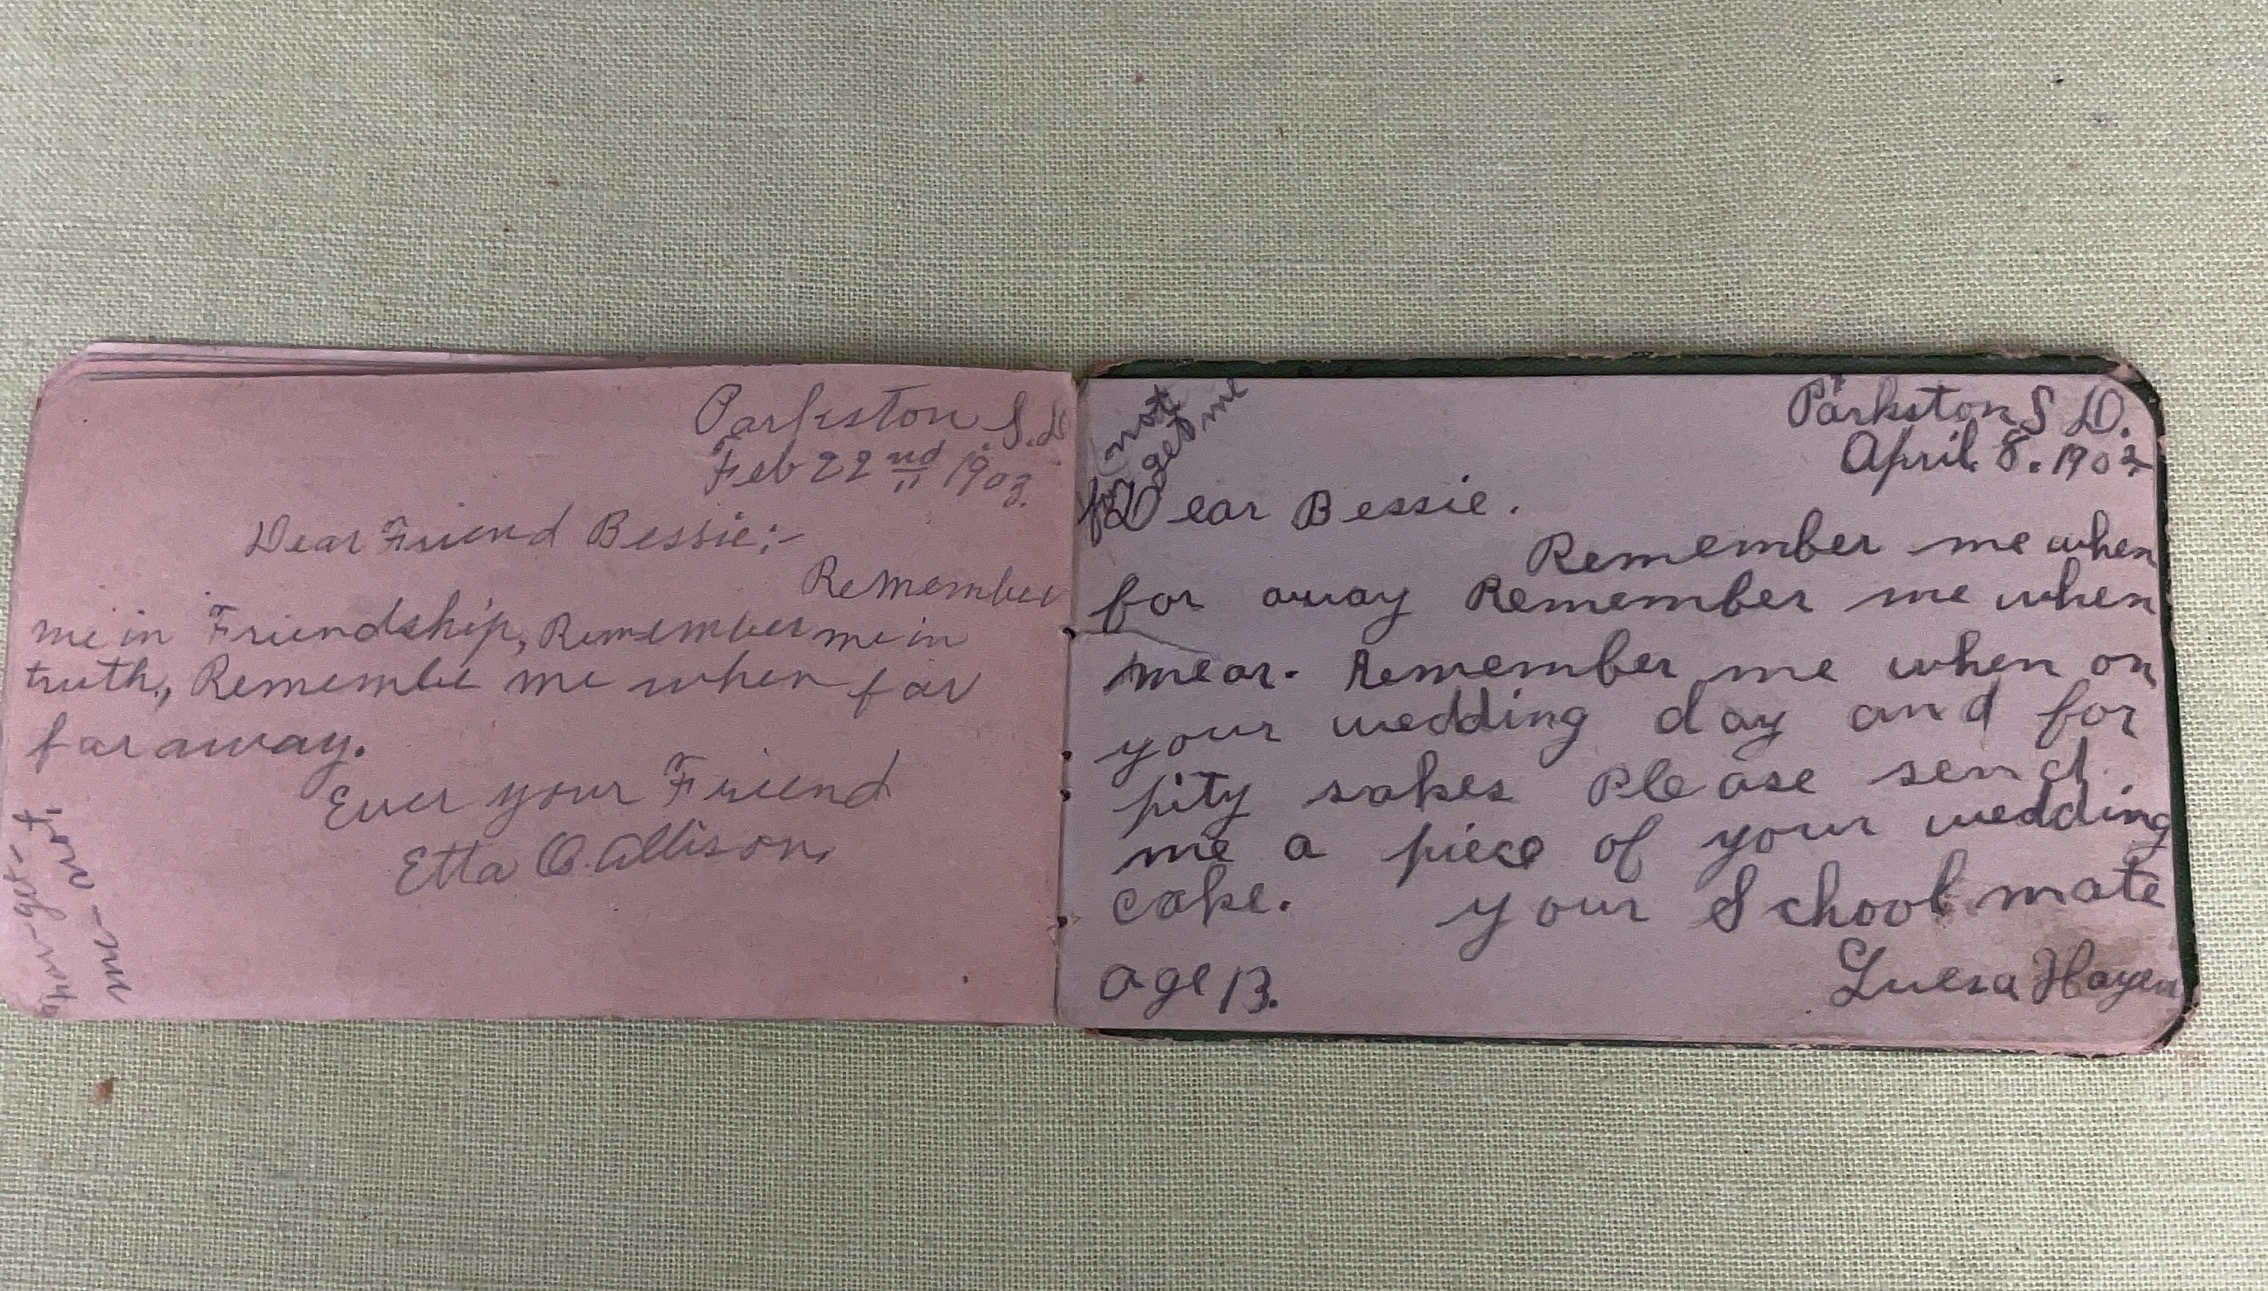 Parkston S.D
Feb 22nd 1903.
Dear Friend Bessie:-
Remember
me in Friendship, Remember me in
truth, Remember me when far
far away.
Ever your Friend
Etta O. Allison,
For-get-
me-not.
for
get me
not
Parkston S D.
April 8. 1902
Dear Bessie.
Remember me when
for away Remember me when
near. Remember me when on
your wedding day and for
pity sakes Please send
me a piece of your wedding
cake. your School mate
age 13. Luesa